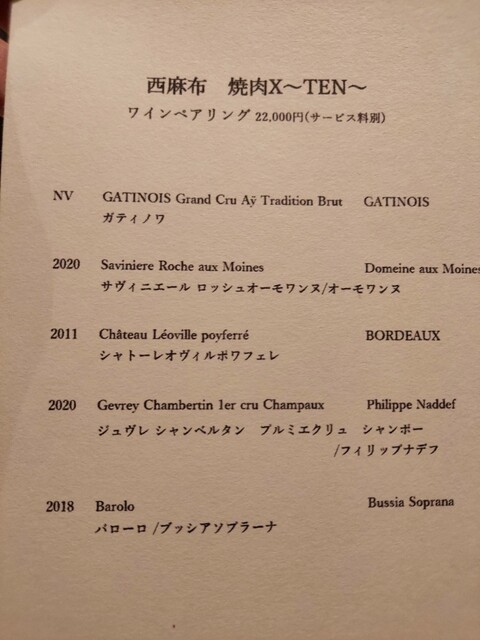 西麻布　焼肉X～TEN～
ワインペアリング 22,000円(サービス料別)
NV GATINOIS Grand Cru Aÿ Tradition Brut GATINOIS
ガティノワ
2020 Saviniere Roche aux Moines Domeine aux Moines
サヴィニエール ロッシュオーモワンヌ/オーモワンヌ
2011 Château Léoville poyferré BORDEAUX
シャトーレオヴィルポワフェレ
2020 Gevrey Chambertin 1er cru Champaux Philippe Naddef
ジュヴレ シャンベルタン　プルミエクリュ　シャンポー
/フィリップナデフ
2018 Barolo Bussia Soprana
バローロ /ブッシアソプラーナ